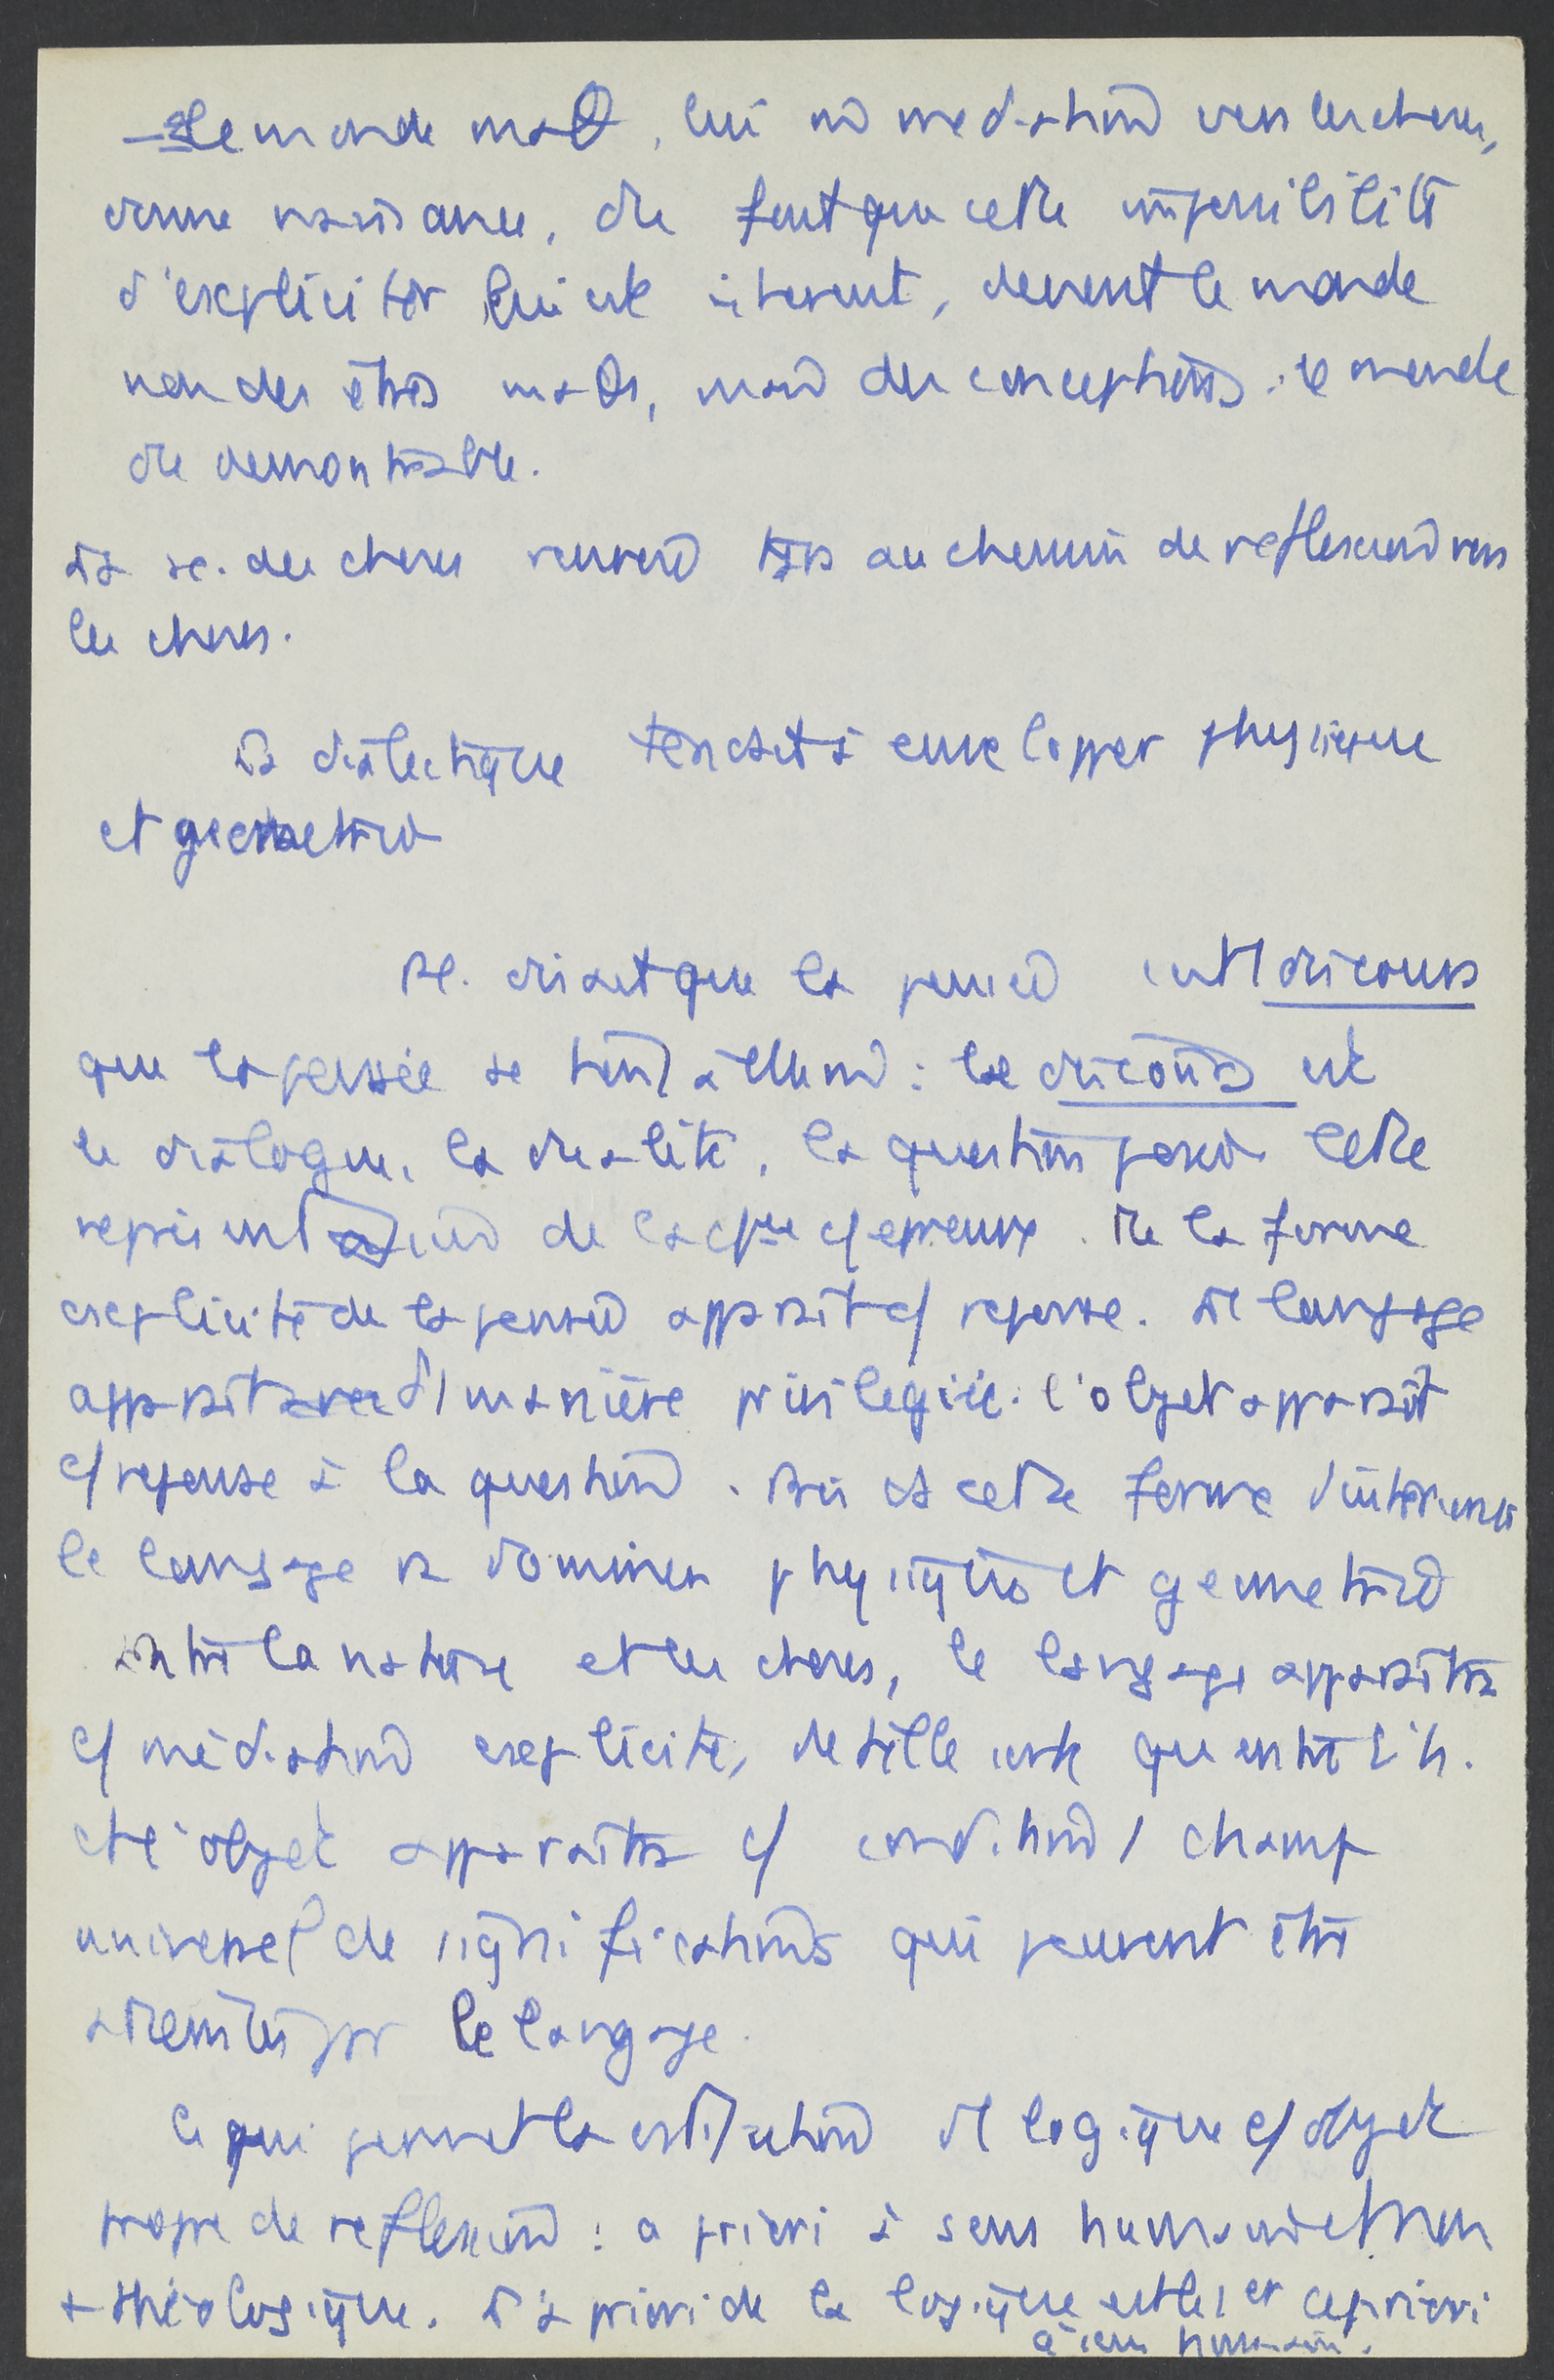 Le monde maθ, lui où médiation vers les choses,
donne naissance, elle fait que cette impossibilité
d'expliciter lui est inhérent, devient le monde
non des êtres maθs, mais des conceptions : le monde
du démontrable.
La sc. des choses renvoie au chemin de réflexion vers
les choses.
La dialectique tendait à envelopper physique
et géométrie
Pl. disait que la pensée est / discours
que la pensée se tient à elle même : ce discours est
le dialogue, la dualité, la question posée. Cette
de c/ épreuve. De la forme
explicite de la pensée apparaît c/ réponse. Le langage
apparaît d'/ manière privilégiée : l'objet apparaît
c/ réponse à la question. Sous cette forme
le langage va dominer physique et géométrie
entre la nature et les choses, le langage apparaîtra
c/ médiation explicite, de telle sorte qu'entre l'h.
et l'objet apparaîtra c/ condition / champ
universel de significations qui peuvent être
par le langage.
Ce qui permet la de logique c/ objet
propre de réflexion : a priori à sens humain et non
théologique. L'a priori de la logique est le 1er a priori
à sens humain.